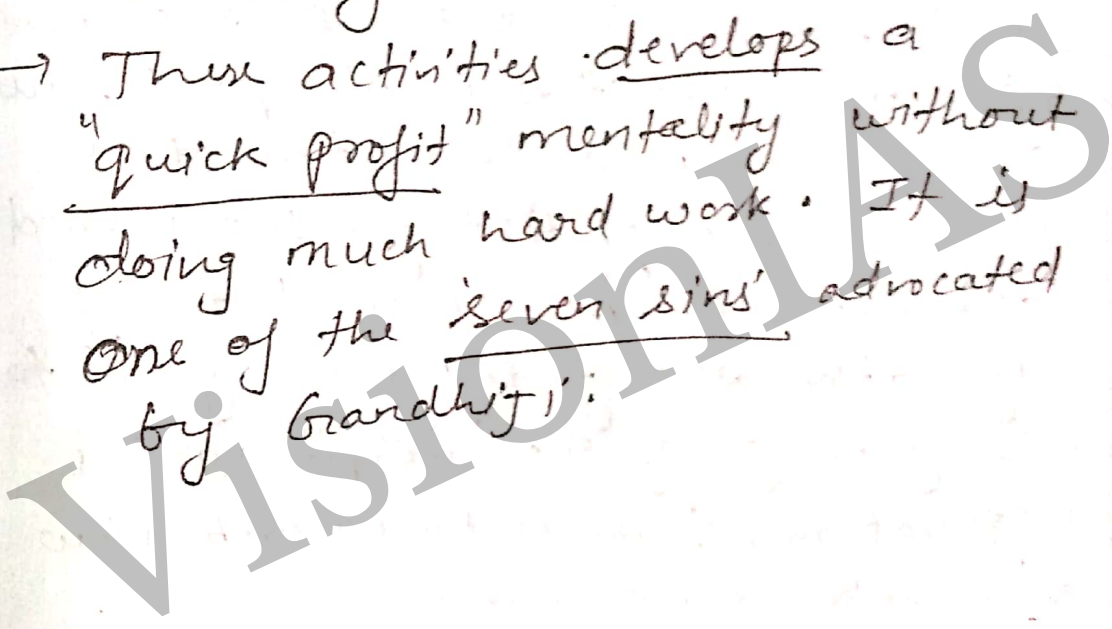 → These activities develops a
"quick profit" mentality without
doing much hard work. It is
one of the 'seven sins' advocated
by Gandhiji.
VisionIAS